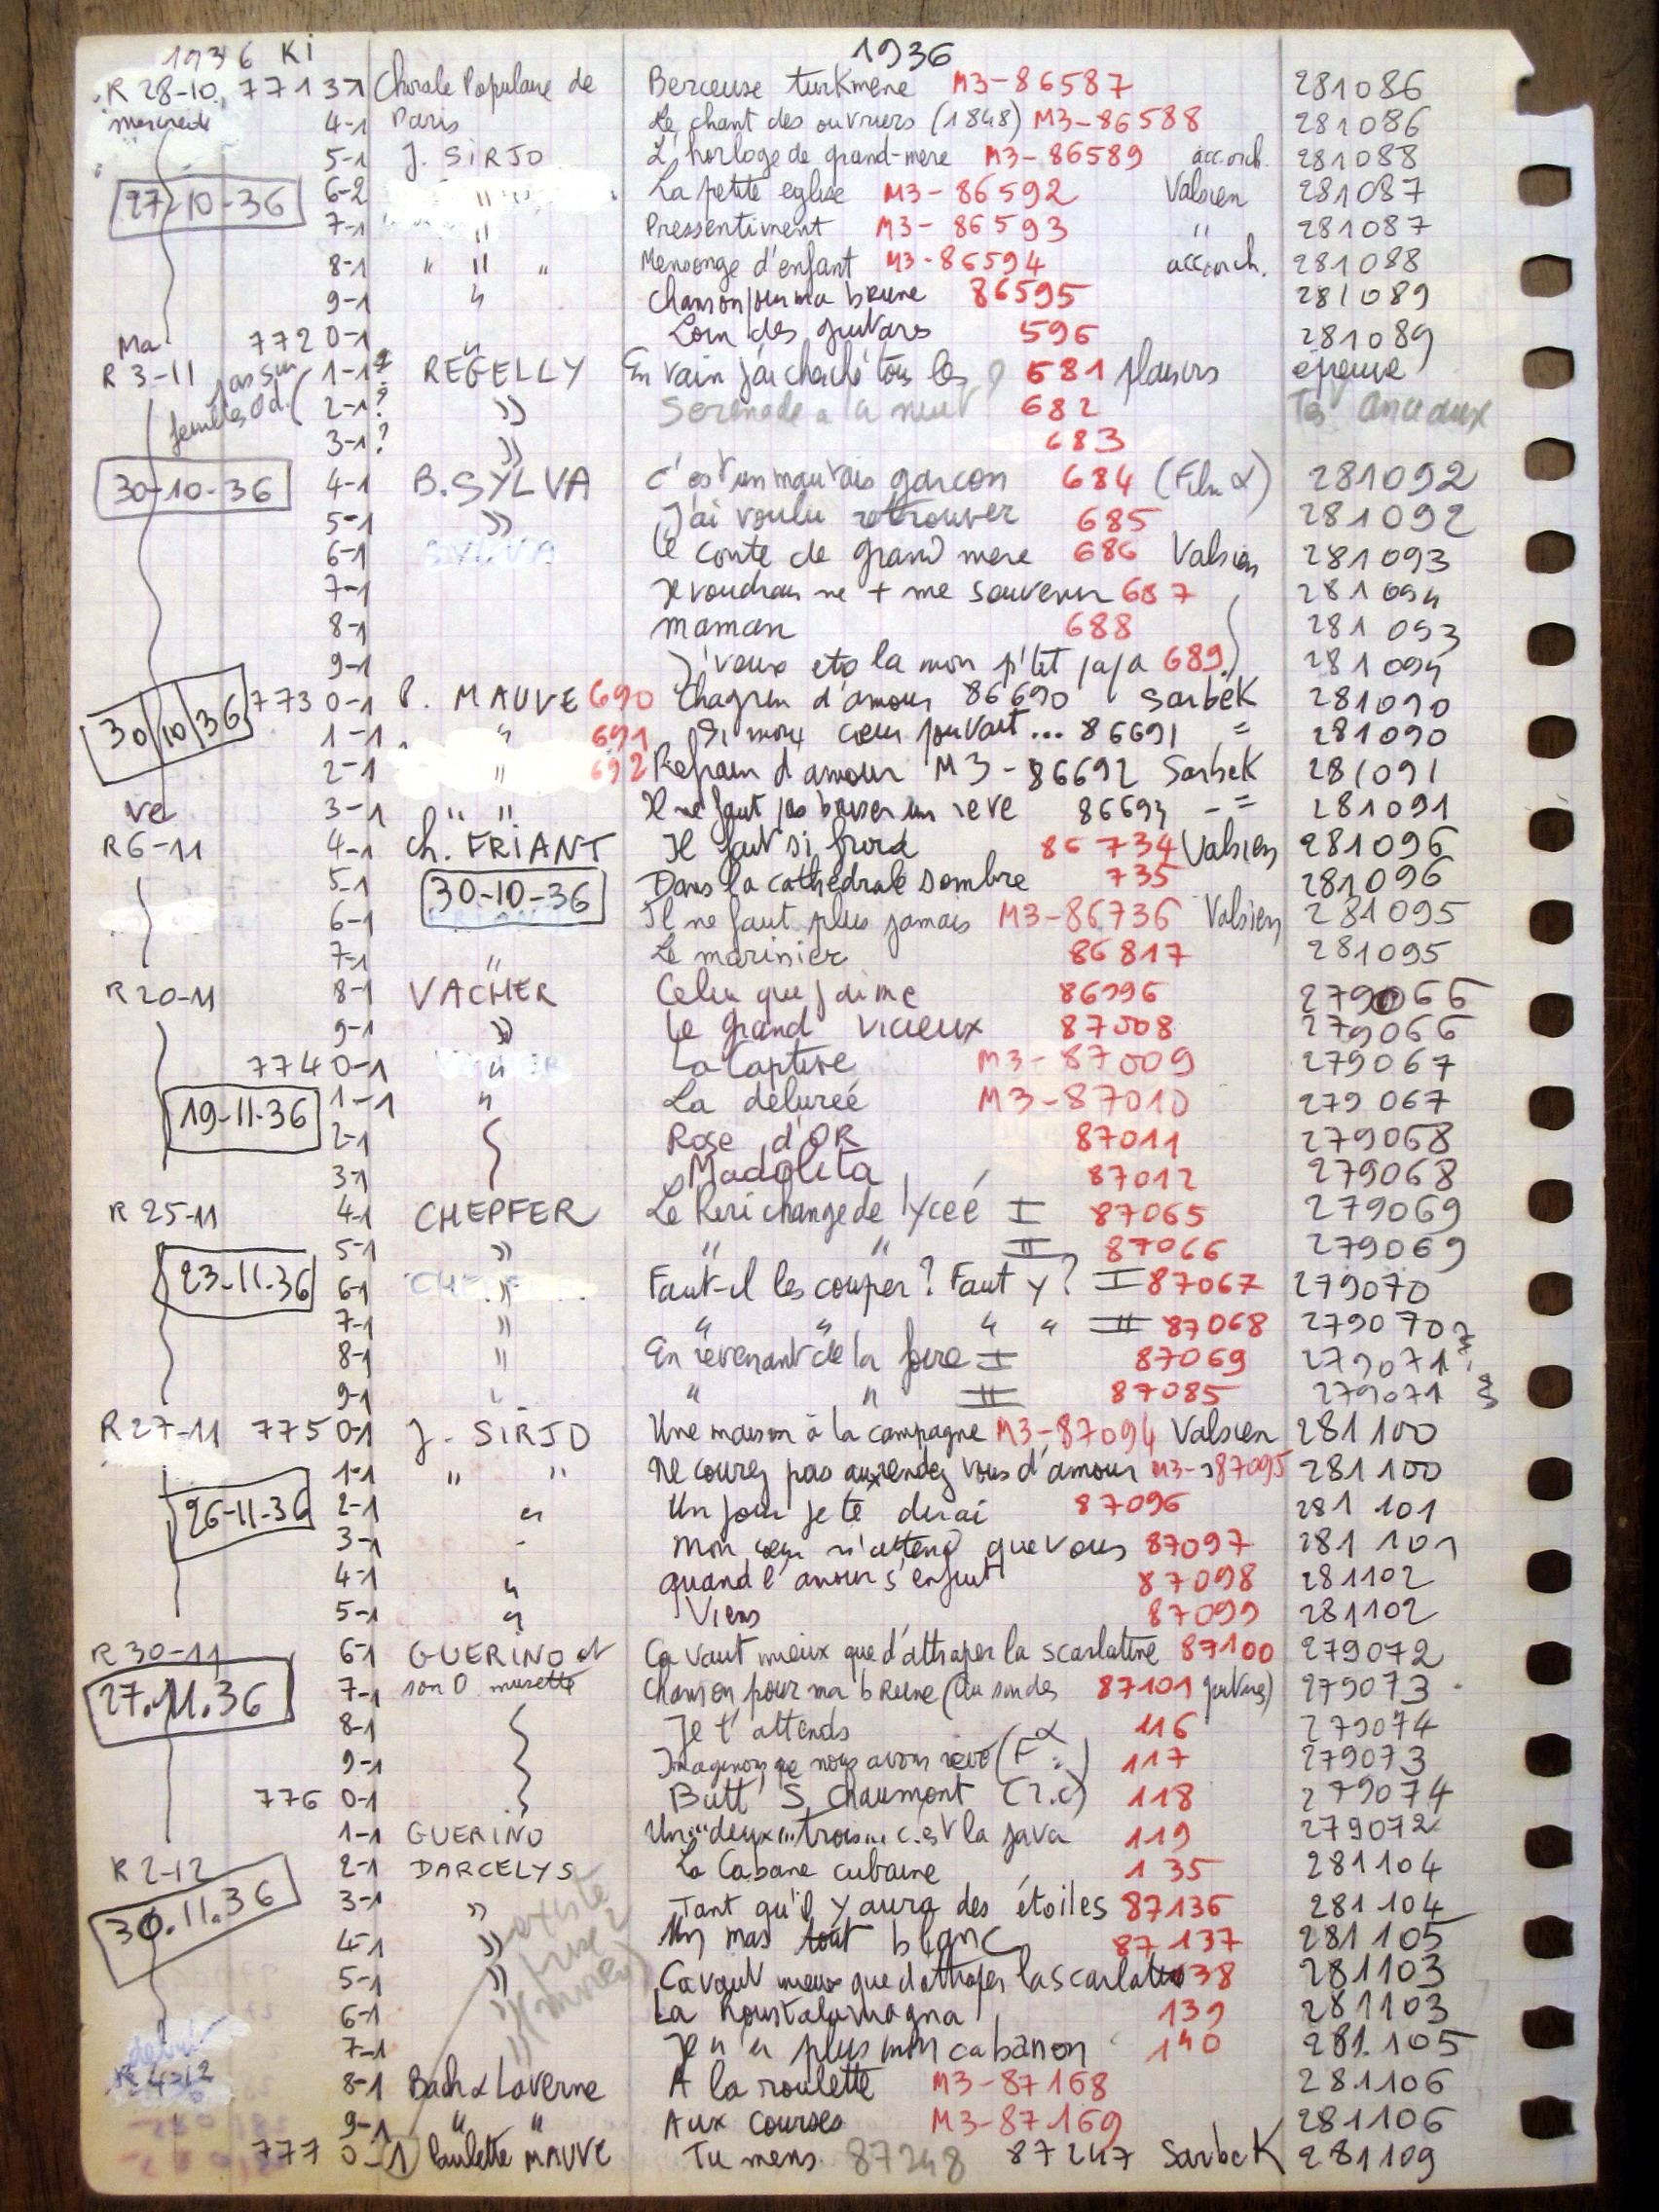 1936 Ki 1936
R 28-10. 7713-1 Chorale Populaire de Berceuse turkmene M3-86587 281086
mercredi 4-1 Paris Le chant des ouvriers (1848) M3-86588 281086
5-1 J. SIRJO L'horloge de grand-mere M3-86589 acc.orch. 281088
27-10-36 6-2 " La petite eglise M3-86592 Valsien 281087
7-1 " Pressentiment M3-86593 " 281087
8-1 " " " Mensonge d'enfant M3-86594 acc.orch. 281088
9-1 " Chanson pour ma brune 86595 281089
Ma 7720-1 " Loin des guitares 596 281089
R 3-11 pas sur 1-1 REGELLY En vain j'ai cherché tous les 681 plaisirs épreuve
feuilles Od. ( 2-1? " Serenade a la nuit 682 Tes anceaux
3-1? " 683
30-10-36 4-1 B. SYLVA C'est un mauvais garcon 684 (Film α) 281092
5-1 " J'ai voulu retrouver 685 281092
6-1 Le conte de grand mere 686 Valsien 281093
7-1 Je voudrais ne + me souvenir 687 281094
8-1 maman 688 281093
9-1 J'veux etre la mon p'tit papa 689 281094
30/10/36 7730-1 P. MAUVE 690 Chagrin d'amour 86690 Sarbek 281090
1-1 " 691 Si mon coeur pouvait... 86691 = 281090
2-1 " 692 Refrain d'amour M3-86692 Sarbek 281091
Ve 3-1 " " Il ne faut pas briser un reve 86693 - = 281091
R6-11 4-1 Ch. FRIANT Il fait si froid 86734 Valsien 281096
5-1 30-10-36 Dans la cathedrale sombre 735 281096
6-1 Il ne faut plus jamais M3-86736 Valsien 281095
7-1 " Le marinier 86817 281095
R 20-11 8-1 VACHER Celui que j'aime 86996 279066
9-1 " Le grand vicieux 87008 279066
7740-1 " La Captive M3-87009 279067
19-11-36 1-1 " La délurée M3-87010 279067
2-1 Rose d'OR 87011 279068
3-1 Madolita 87012 279068
R 25-11 4-1 CHEPFER Le Kiri change de lyceé I 87065 279069
5-1 " " " II 87066 279069
23-11-36 6-1 " Faut-il les couper? Faut y? I 87067 279070
7-1 " " " " " II 87068 279070?
8-1 " En revenant de la foire I 87069 279071?
9-1 " " " II 87085 279071
R 27-11 7750-1 J. SIRJO Une maison à la campagne M3-87094 Valsien 281100
1-1 " " Ne courez pas aux rendez vous d'amour M3-87095 281100
26-11-36 2-1 " Un jour je te dirai 87096 281101
3-1 - Mon coeur n'attend que vous 87097 281101
4-1 " quand l'amour s'enfuit 87098 281102
5-1 " Viens 87099 281102
R 30-11 6-1 GUERINO et Ca vaut mieux que d'attraper la scarlatine 87100 279072
27.11.36 7-1 son O musette Chanson pour ma brune (Au son des 87101 guitares) 279073
8-1 Je t'attends 116 279074
9-1 Imaginons que nous avons revé (F α =) 117 279073
7760-1 Butt' S. Chaumont (r.c) 118 279074
1-1 GUERINO Un... deux... trois... c'est la java 119 279072
R 2-12 2-1 DARCELYS La Cabane cubaine 135 281104
30.11.36 3-1 " existe Tant qu'il y aura des étoiles 87136 281104
4-1 " prise 2 Un mas tout blanc 87137 281105
5-1 " Ca vaut mieux que d'attraper la scarlat 38 281103
6-1 " La Houstalamagna 139 281103
7-1 " Je n'ai plus mon cabanon 140 281.105
R 4-12 8-1 Bach & Laverne A la roulette M3-87168 281106
9-1 " " Aux courses M3-87169 281106
7770-1 Paulette MAUVE Tu mens 87248 87247 Sarbek 281109